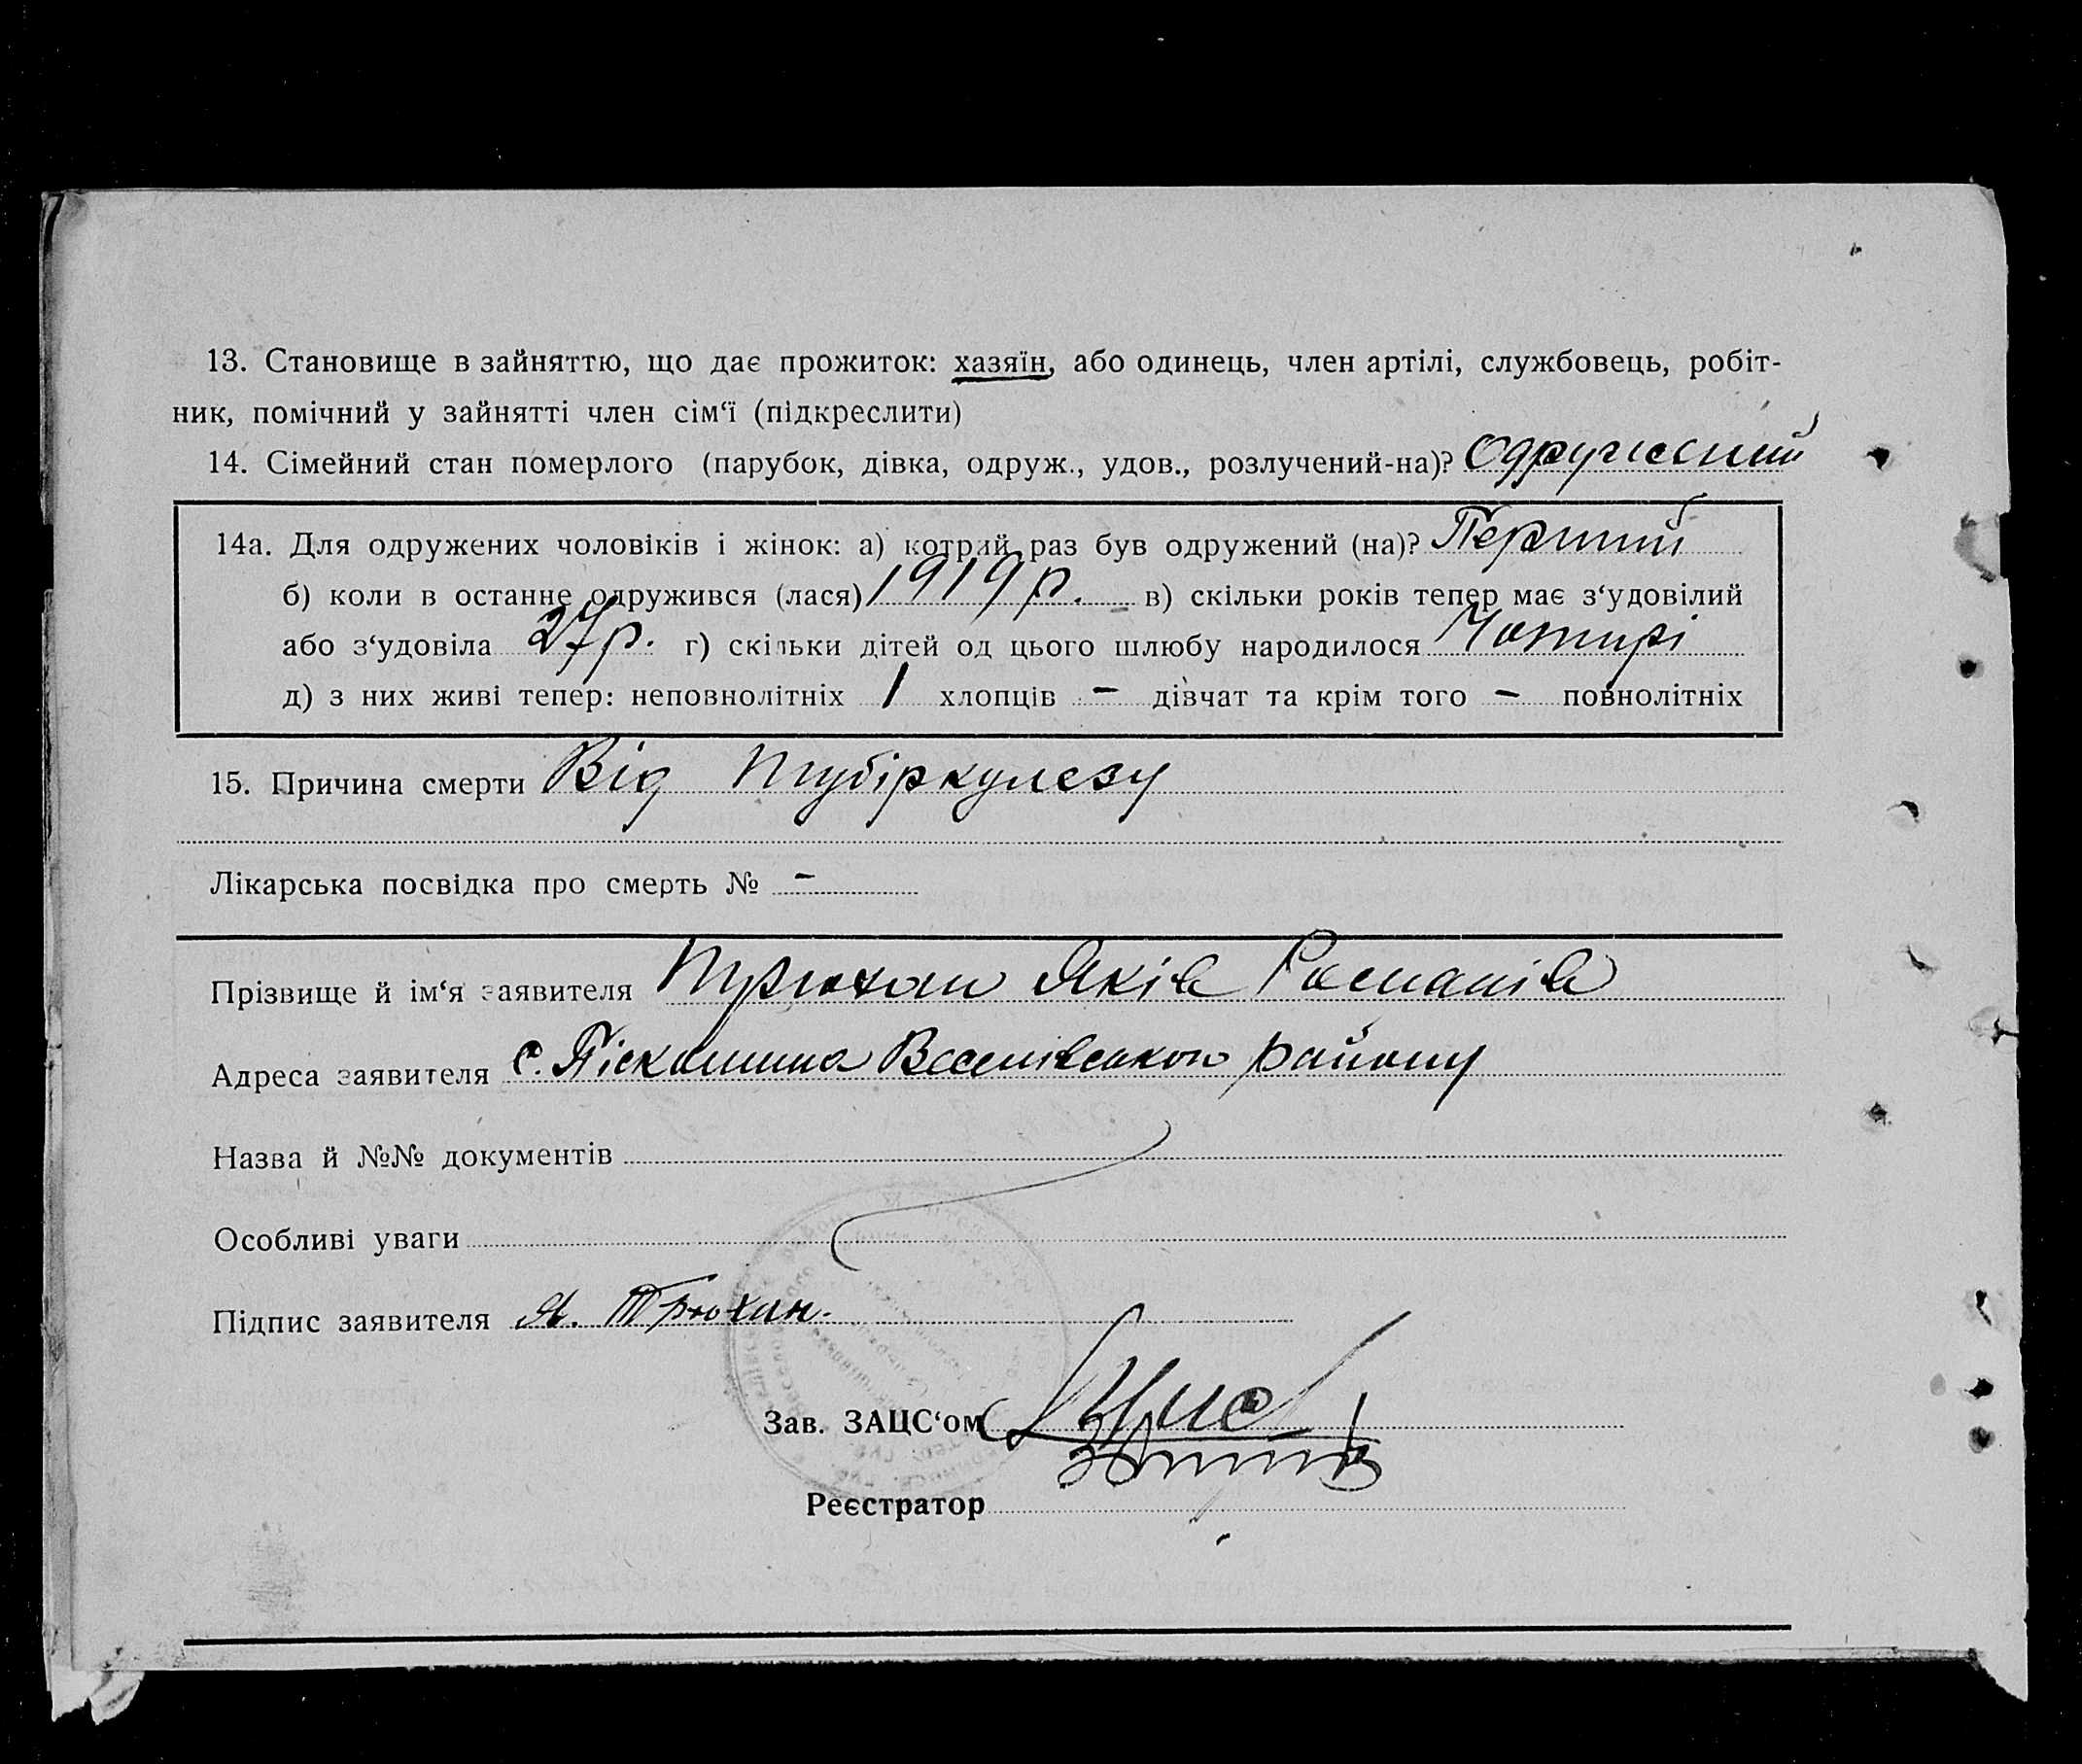 13. Становище в зайняттю, що дає прожиток: хазяїн, або одинець, член артілі, службовець, робіт-
ник, помічний у зайнятті член сім‘ї (підкреслити)
14. Сімейний стан померлого (парубок, дівка, одруж., удов., розлучений-на)? Одружений
14а. Для одружених чоловіків і жінок: а) котрий раз був одружений (на)? Перший
б) коли в останнє одружився (лася) 1919 р. в) скільки років тепер має з‘удовілий
або з‘удовіла 27 р. г) скільки дітей од цього шлюбу народилося Чотирі
д) з них живі тепер: неповнолітніх 1 хлопців – дівчат та крім того – повнолітніх
15. Причина смерти Від тубіркулезу
Лікарська посвідка про смерть № –
Прізвище й ім‘я заявителя Трюхан Яків Романів
Адреса заявителя с. Піскошина Веселівського району
Назва й №№ документів
Особливі уваги
Підпис заявителя Я. Трюхан.
Зав. ЗАЦС‘ом
Реєстратор